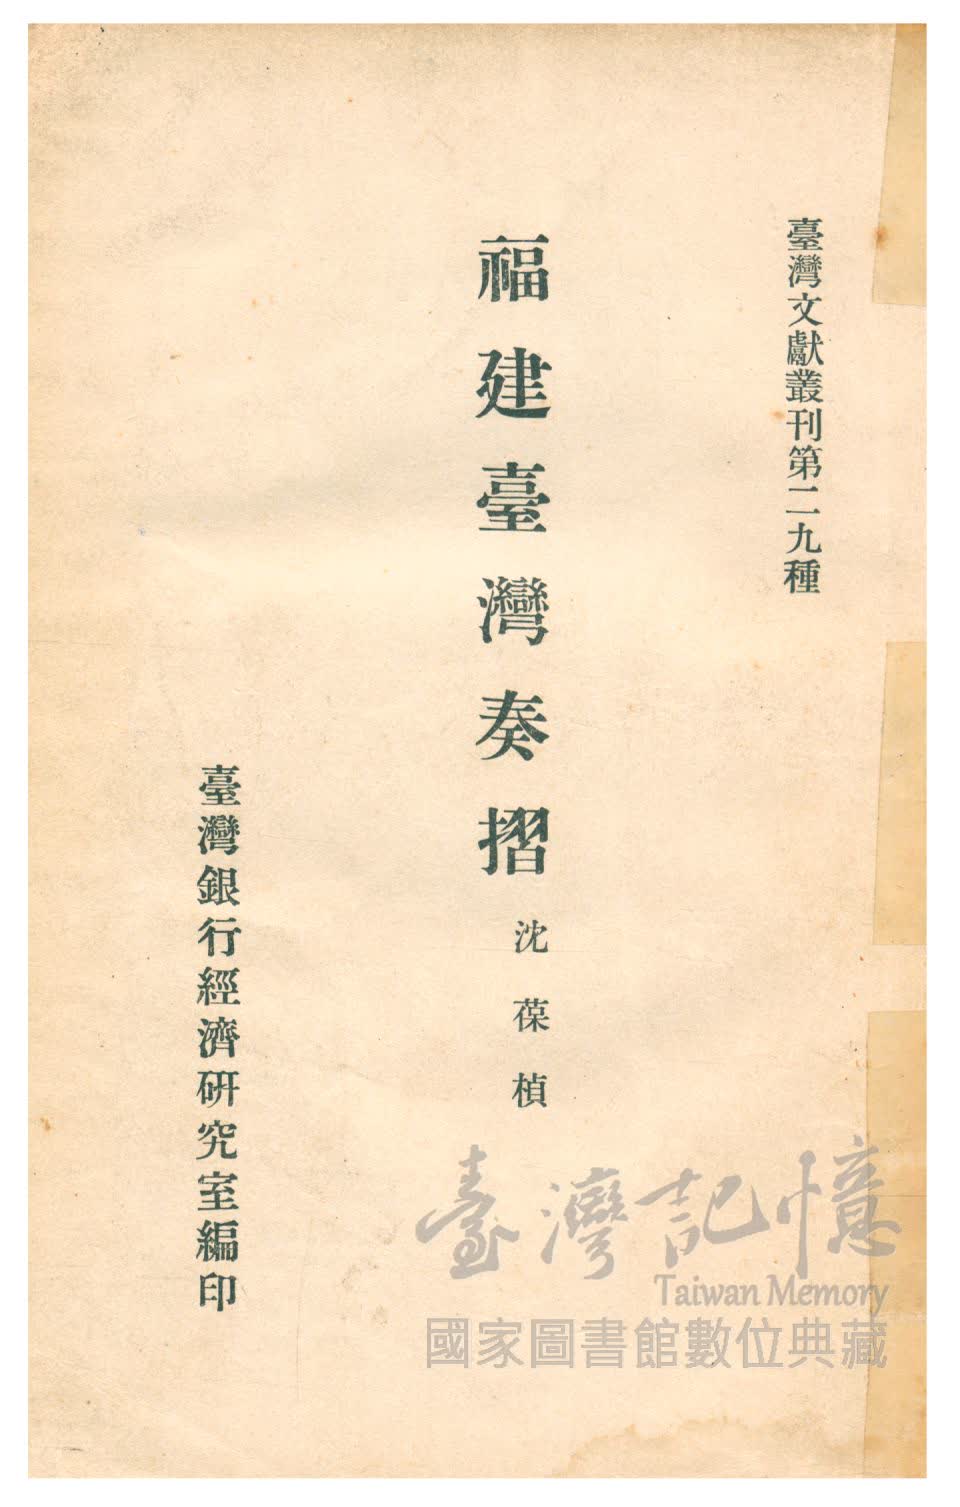 臺灣文獻叢刊第二九種
福建臺灣奏摺
沈葆楨
臺灣銀行經濟研究室編印
臺灣記憶
Taiwan Memory
國家圖書館數位典藏